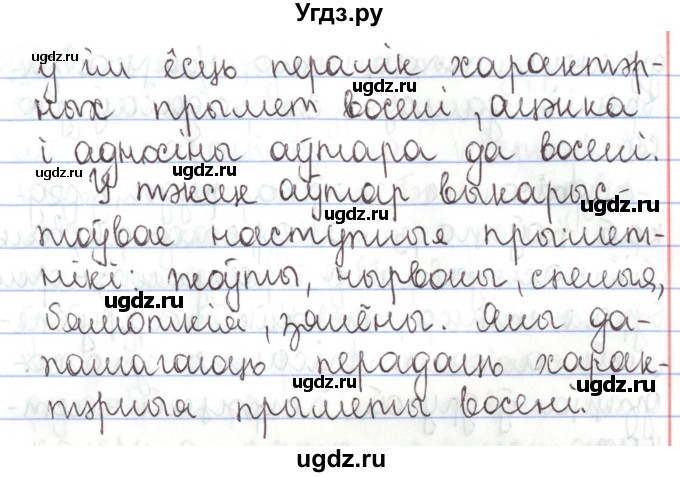 Угдз.ру
ў ім ёсць пералік характэр-
ных прымет восені, ацэнка
і адносіны аўтара да восені.
У тэксце аўтар выкарыс-
тоўвае наступныя прымет-
нікі: жоўты, чырвоны, спелыя,
бялюткія, зялёны. Яны да-
памагаюць перадаць харак-
тэрныя прыметы восені.
ugdz.ru
ugdz.ru
ugdz.ru
ugdz.ru
ugdz.ru
ugdz.ru
ugdz.ru
ugdz.ru
ugdz.ru
ugdz.ru